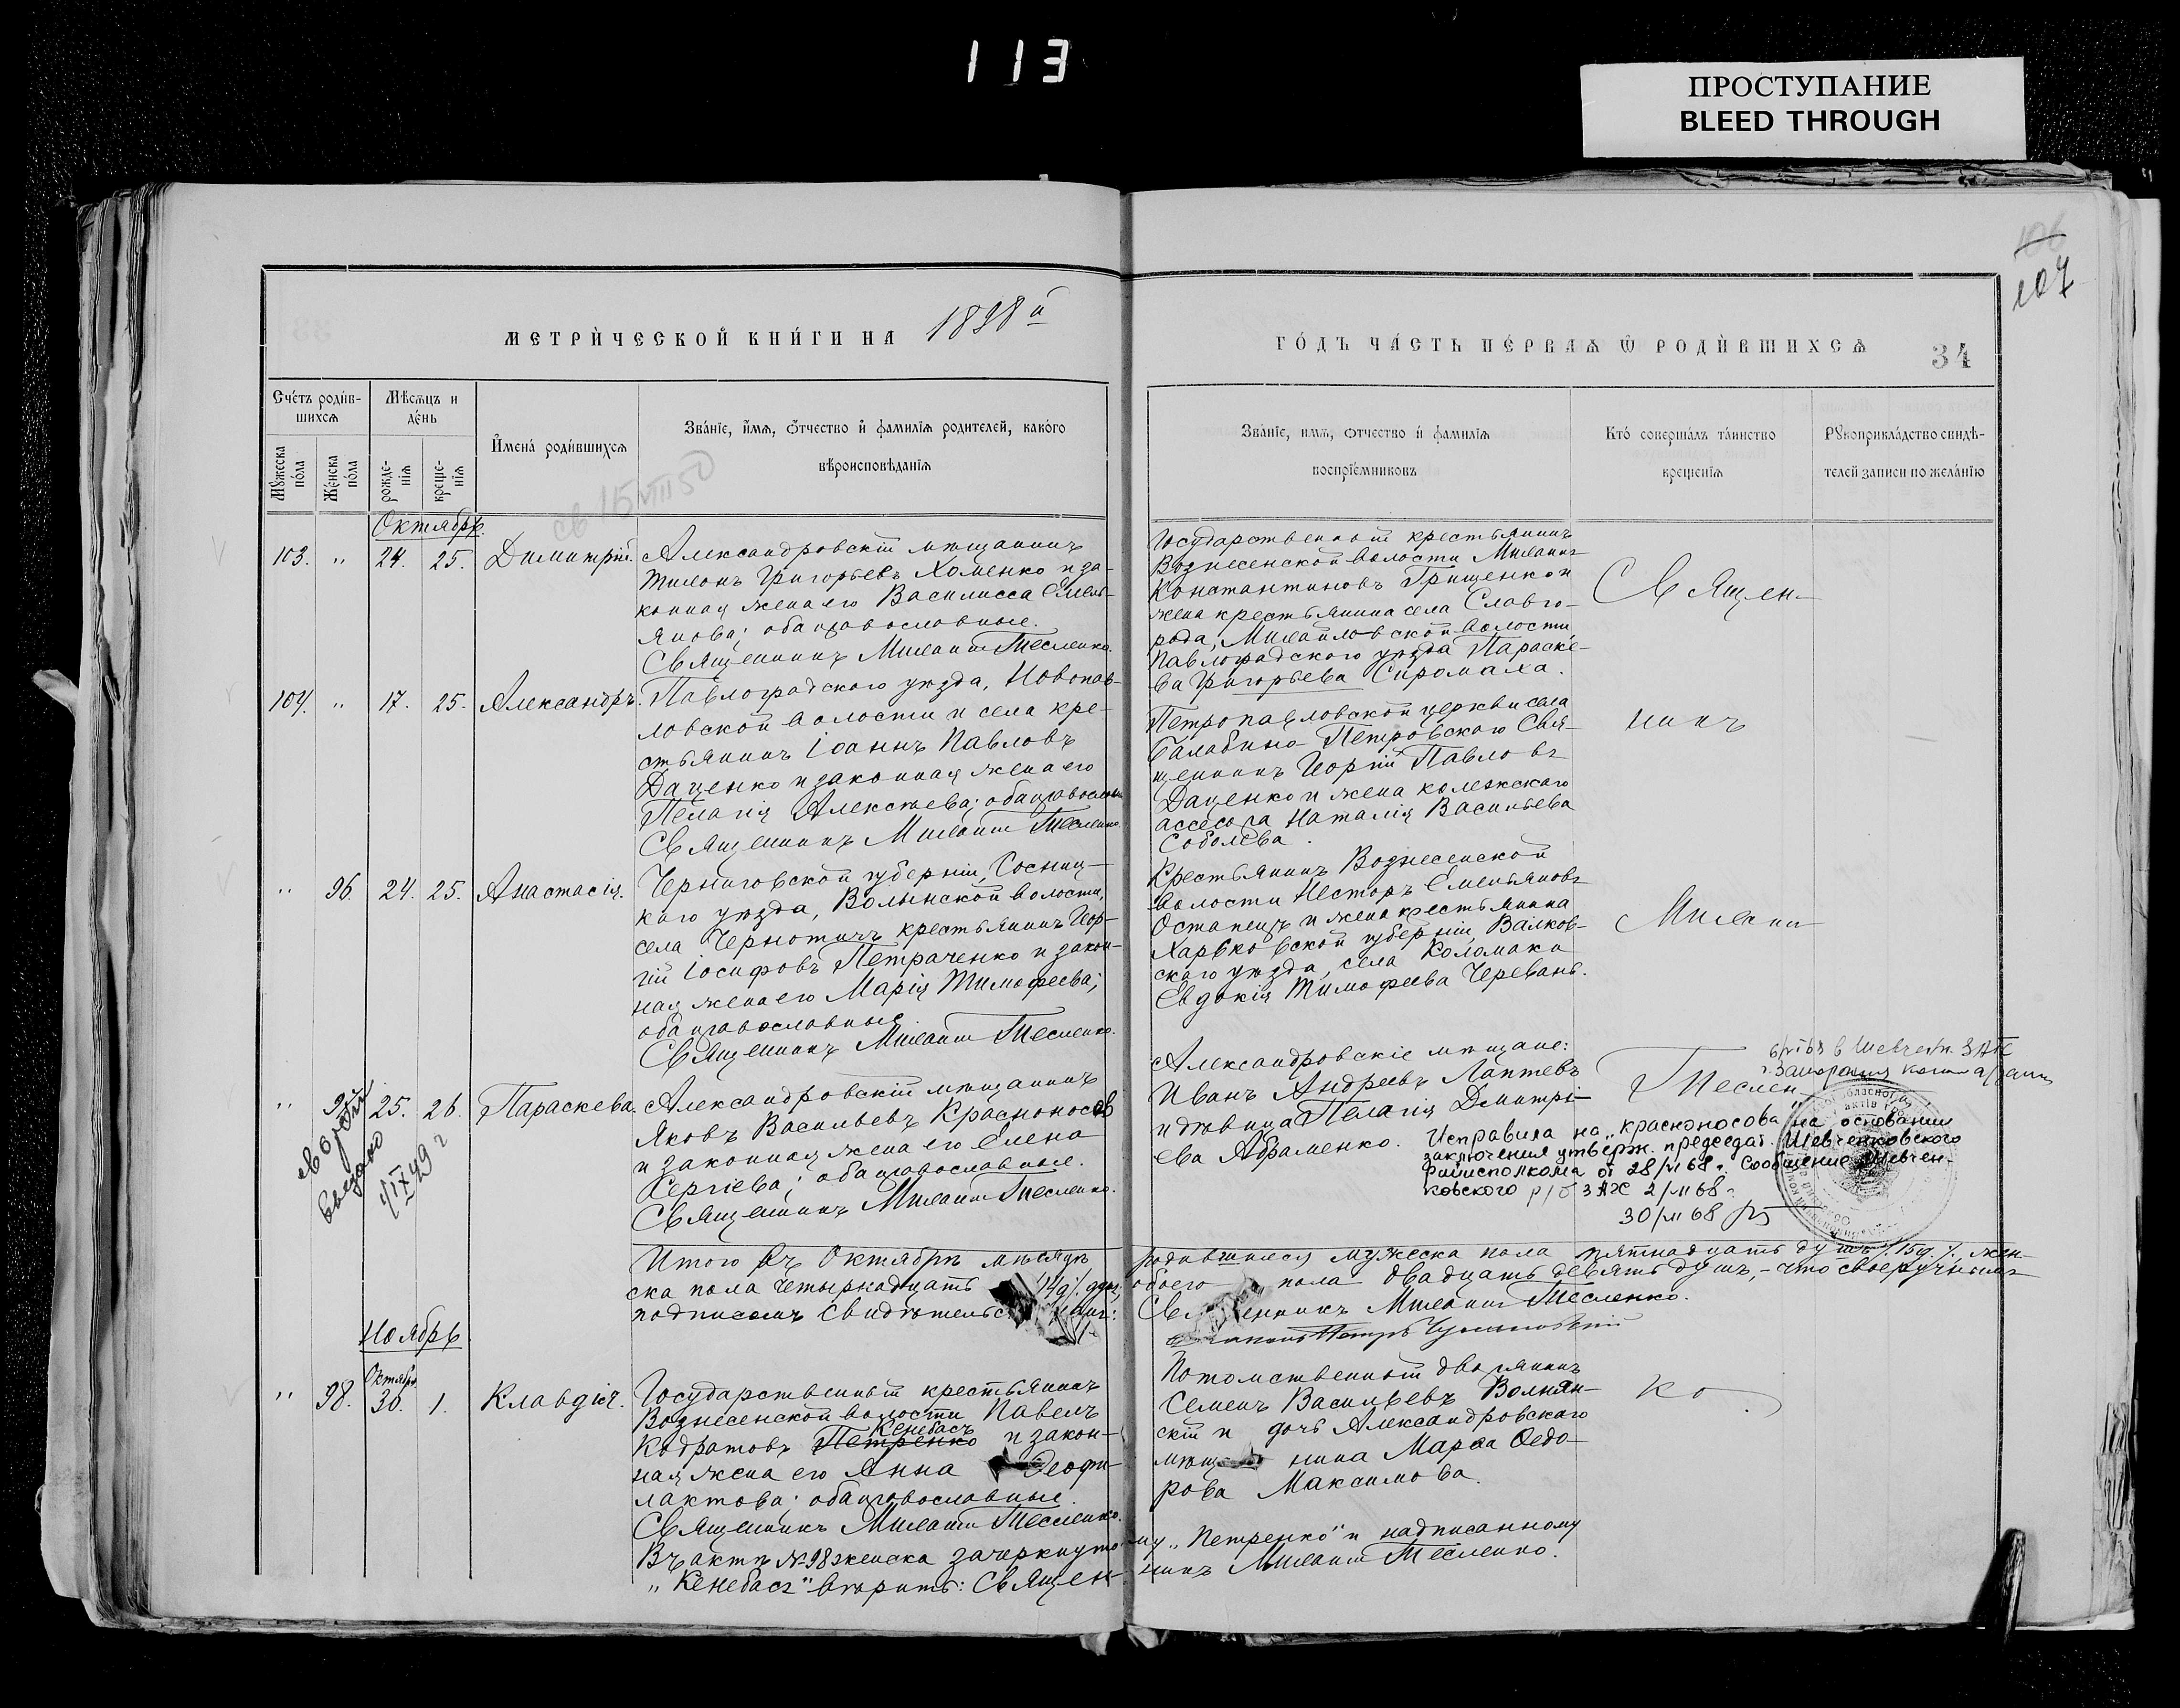 113
ПРОСТУПАНИЕ
BLEED THROUGH
106
107
МЕТРИ́ЧЕСКОЙ КНИ́ГИ НА 1898 й
ГО́ДЪ ЧА́СТЬ ПЕ́РВАѦ Ѡ РОДИ́ВШИХСѦ
34
Сче́тъ роди́в-
шихсѧ
Мѣсѧцъ и
де́нь
И҆мена̀ роди́вшихсѧ
Зва́нїе, и҆́мѧ, ѻ҆́тчество и҆ фамилїѧ родителей, како́го
вѣроисповѣ́данїѧ
Мꙋ́жеска
по́ла
Же́нска
по́ла
рожде-
нїѧ
креще-
нїѧ
Зва́нїе, имѧ, ѻтчество и҆ фамилїѧ
воспрїе́мниковъ
Кто̀ соверша́лъ та́инство
креще́нїѧ
Рꙋкоприкла́дство свидѣ-
телей записи по жела́нїю
св 15 VIII 50
Октябрь.
103. " 24. 25. Димитрій.
Александровскій мѣщанинъ
Тихонъ Григорьевъ Хоменко и за-
конная жена его Василисса Емель-
янова; оба православные.
Священникъ Михаилъ Тесленко.
Государственный крестьянинъ
Вознесенской волости Михаилъ
Константиновъ Грищенко и
жена крестьянина села Славго-
рода, Михайловской волости,
Павлоградского уѣзда Параске-
ва Григорьева Сиромаха.
Священ-
104. " 17. 25. Александръ.
Павлоградского уѣзда, Новопав-
ловской волости и села кре-
стьянинъ Іоаннъ Павловъ
Даценко и законная жена его
Пелагія Алексѣева; оба православные
Священникъ Михаилъ Тесленко.
Петропавловской церкви села
Балабино-Петровскаго Свя-
щенникъ Георгій Павловъ
Даценко и жена колежскаго
ассесора Наталія Васильева
Соболева.
никъ
" 96. 24. 25. Анастасія.
Черниговской губерніи, Сосниц-
каго уѣзда, Волынской волости,
села Чернотичъ крестьянинъ Геор-
гій Іосифовъ Петраченко и закон-
ная жена его Марія Тимофеева;
оба православные.
Священникъ Михаилъ Тесленко.
Крестьянинъ Вознесенской
волости Несторъ Емельяновъ
Остапецъ и жена крестьянина
Харьковской губерніи, Валков-
ского уѣзда, села Коломака
Евдокія Тимофеева Черевань.
Михаилъ
" 97. 25. 26. Параскева.
введено
1/IX 49 г
Александровскій мѣщанинъ
Яковъ Васильевъ Красноносов
и законная жена его Елена
Сергіева; оба православные.
Священникъ Михаилъ Тесленко.
Александровскіе мѣщане:
Иванъ Андреевъ Лаптевъ
и дѣвица Пелагія Дмитрі-
ева Абраменко.
Теслен-
Исправила на „Красноносова" на основании
заключения утверж. председат. Шевченковского
райисполкома от 28/VI 68 г. Сообщение Шевчен-
ковского р/б ЗАГС 2/VII 68 г.
30/VII 68
Итого въ Октябрѣ мѣсяцѣ родившихся мужеска пола пятнадцать душъ /.15д./. жен-
ска пола четырнадцать /.14д./. душъ, обоего пола двадцать девять душъ, - что своеручнымъ
подписомъ свидѣтельс Священникъ Михаилъ Тесленко.
Ноябрь
Октябрь
" 98. 30. 1. Клавдія.
Государственный крестьянинъ
Вознесенской волости Павелъ
Кенебасъ
Кодратовъ Петренко и закон-
ная жена его Анна Феофи-
лактова; оба православные.
Священникъ Михаилъ Тесленко.
Потомственный дворянинъ
Семенъ Васильевъ Волнян-
скій и дочь Александровскаго
мѣщанина Марѳа Ѳедо-
рова Максимова.
ко
Въ актѣ № 98 женска зачеркнутому „Петренко" и надписанному
„Кенебасъ" вѣрить: Священникъ Михаилъ Тесленко.